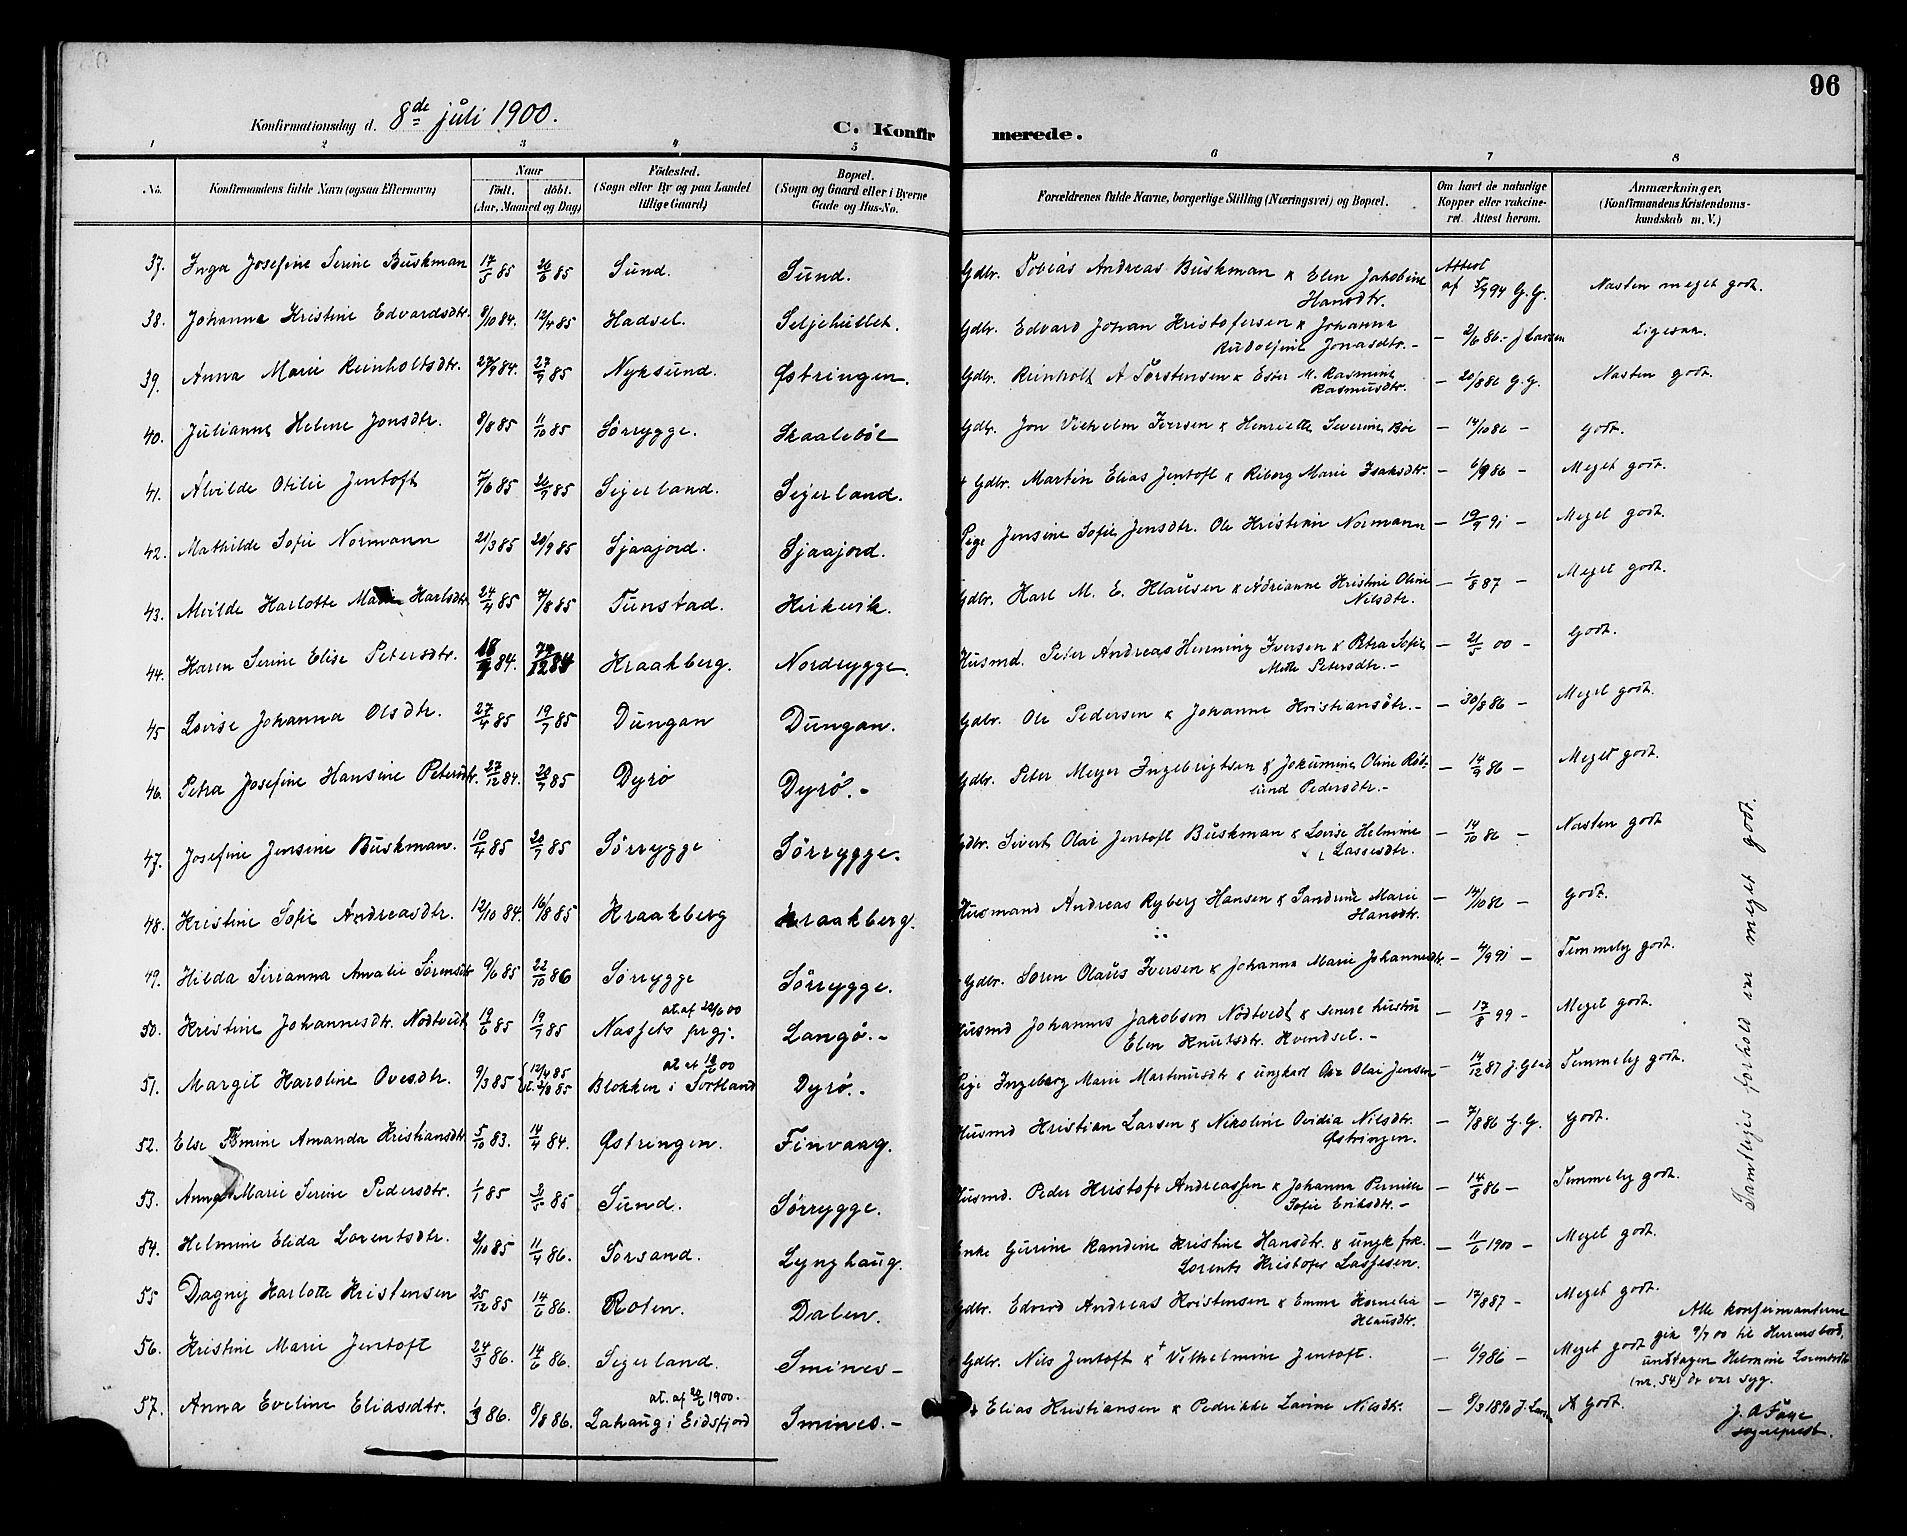 96
Konfirmationsdag d. 8de juli 1900.
C. Konfirmerede.
1 2 3 4 5 6 7 8
No. Konfirmandens fulde Navn (ogsaa Efternavn) Naar födt. döbt. (Aar, Maaned og Dag) Födested. (Sogn eller By og paa Landet tillige Gaard) Bopæl. (Sogn og Gaard eller i Byerne Gade og Hus-No. Forældrenes fulde Navne, borgerlige Stilling (Næringsvei) og Bopæl. Om havt de naturlige Kopper eller vakcineret. Attest herom. Anmærkninger. (Konfirmandens Kristendomskundskab m. V.)
37. Inga Josefine Serine Buskman 17/5 85 26/6 85 Sund. Sund. Gdbr. Tobias Andreas Buskman & Elen Jakobine Hansdtr. Attest af 5/9 94 G.G. Næsten meget godt.
38. Johanna Kristine Edvardsdtr. 8/10 84. 12/4 85 Hadsel. Seljehullet. Gdbr. Edvard Johan Kristofersen & Johanna Rudolfine Jonasdtr. - 2/6 86 - J Larsen Ligesaa.
39. Anna Marie Reinholtsdtr. 27/9 84. 27/9 85 Nyksund. Østringen. Gdbr. Reinholt A Torstensen & Ester M. Rasmine Rasmusdtr. - 20/8 86 G.G. Næsten godt.
40. Julianna Helene Jonsdtr. 8/8 85 11/10 85 Sørrygge. Skaalebøl Gdbr. Jon Vilhelm Iversen & Henriette Severine Boe - 14/10 86 - godt.
41. Alvilde Otilie Jentoft 7/6 85 26/7 85 Sejerland. Sejerland. + Gdbr. Martin Elias Jentoft & Riborg Marie Isaksdtr. - 6/9 86 - Meget godt.
42. Mathilde Sofie Normann 21/3 85 20/9 85 Sjaajord. Sjaajord. Pige Jensine Sofie Jensdtr. Ole Kristian Normann - 19/9 91 - Meget godt.
43. Alvilde Karlotte Marie Karlsdtr. 24/4 85 7/8 85 Tunstad. Kirkvik. Gdbr. Karl M. E. Klausen & Adrianne Kristine Oline Nilsdtr. - 1/8 87 - Meget godt.
44. Karen Serine Elise Petersdtr. 18/9 84. 29/12 84 Kraakberg. Nordrygge. Husmd. Peter Andreas Henning Iversen & Petra Sofie Mette Petersdtr. - 21/5 00 - Godt.
45 Lovise Johanna Olsdtr. 27/4 85 19/7 85 Dungan Dungan. Gdbr. Ole Pedersen & Johanne Kristiansdtr. - 30/8 86 - Meget godt.
46. Petra Josefine Hansine Petersdtr. 27/12 84. 20/7 85 Dyrø Dyrø. - Gdbr. Peter Meyer Ingebrigtsen & Jokumine Oline Rødlund Pedersdtr. - 14/9 86 - Meget godt.
47. Josefine Jensine Buskman. 10/4 85 20/7 85 Sørrygge Sørrygge. Gdbr. Sivert Olai Jentoft Buskman & Lovise Helmine Lassesdtr. - 14/10 86 - Næsten godt
48. Kristine Sofie Andreasdtr. 12/10 84. 16/8 85 Kraakberg Kraakberg. Husmand Andreas Ryberg Hansen & Sandrine Marie Hansdtr. - 14/10 86 - Godt.
49. Hilda Sirianna Amalie Sørensdtr 9/6 85 22/10 86 Sørrygge Sørrygge. Gdbr. Søren Olaus Iversen & Johanna Marie Johannesdtr. - 4/9 91 - Temmelig godt.
50. Kristine Johannesdtr. Nødtvedt 19/6 85 19/7 85 at. af 22/6 00 Næssets prgj. Langø. - Husmd Johannes Jakobsen Nødtvedt & senere hustru Elen Knutsdtr. Kvendset. - 17/8 99 - Meget godt.
51. Margit Karoline Ovesdtr. 9/3 85 12/4 85 at. 2/8 85 at. et 18/6 00 Blokken i Sortland Dyrø. - Pige Ingeborg Marie Martinusdtr & ungkarl Ove Olai Jensen - 14/12 87 J. Glad Temmelig godt.
52. Else Emine Amanda Kristiansdtr 5/10 83. 14/4 84. Østringen. Finvaag. Husmd Kristian Larsen & Nikoline Ovidia Nilsdtr. Østringen. - 7/8 86 G.G. Godt.
53. Anna Marie Serine Pedersdtr. 1/1 85 3/5 85 Sund. Sørrygge. Husmd. Peder Kristofr Andreassen & Johanna Pernille Sofie Eriksdtr. - - 14/8 86 - Temmelig godt.
54. Helmine Elida Lorentsdtr. 2/10 85 11/4 86. Sørsand. Lynghaug. Enke Gurine Randine Kristine Hansdtr. & ungk frk. Lorents Kristofer Lassesen. - 11/6 1900 - Meget godt.
55 Dagny Karlotte Kristensen 25/12 85 14/6 86. Roten. Dalen. Gdbr. Edvard Andreas Kristensen & Emma Kornelia Klausdtr. - 17/8 87 - Meget godt.
56. Kristine Marie Jentoft 24/3 86. 14/6 86. Sejerland. Smines - Gdbr. Nils Jentoft & + Vilhelmine Jentoft. - 6/9 86 - Meget godt
57. Anna Eveline Eliasdtr. 1/3 86. 8/8 86. at. af 20/6 1900. Lahaug i Eidsfjord Smines. - + Elias Kristiansen & Pedrikke Lavine Nilsdtr. - 8/3 1890 J. Larsen Godt.
Samtliges forhold var meget godt.
Alle konfirmanterne
gik 9/7 00 til Herrensbord,
undtagen Helmine Lorentsdtr
(nr. 54) der var syg.
J. A Faye
sogneprest.